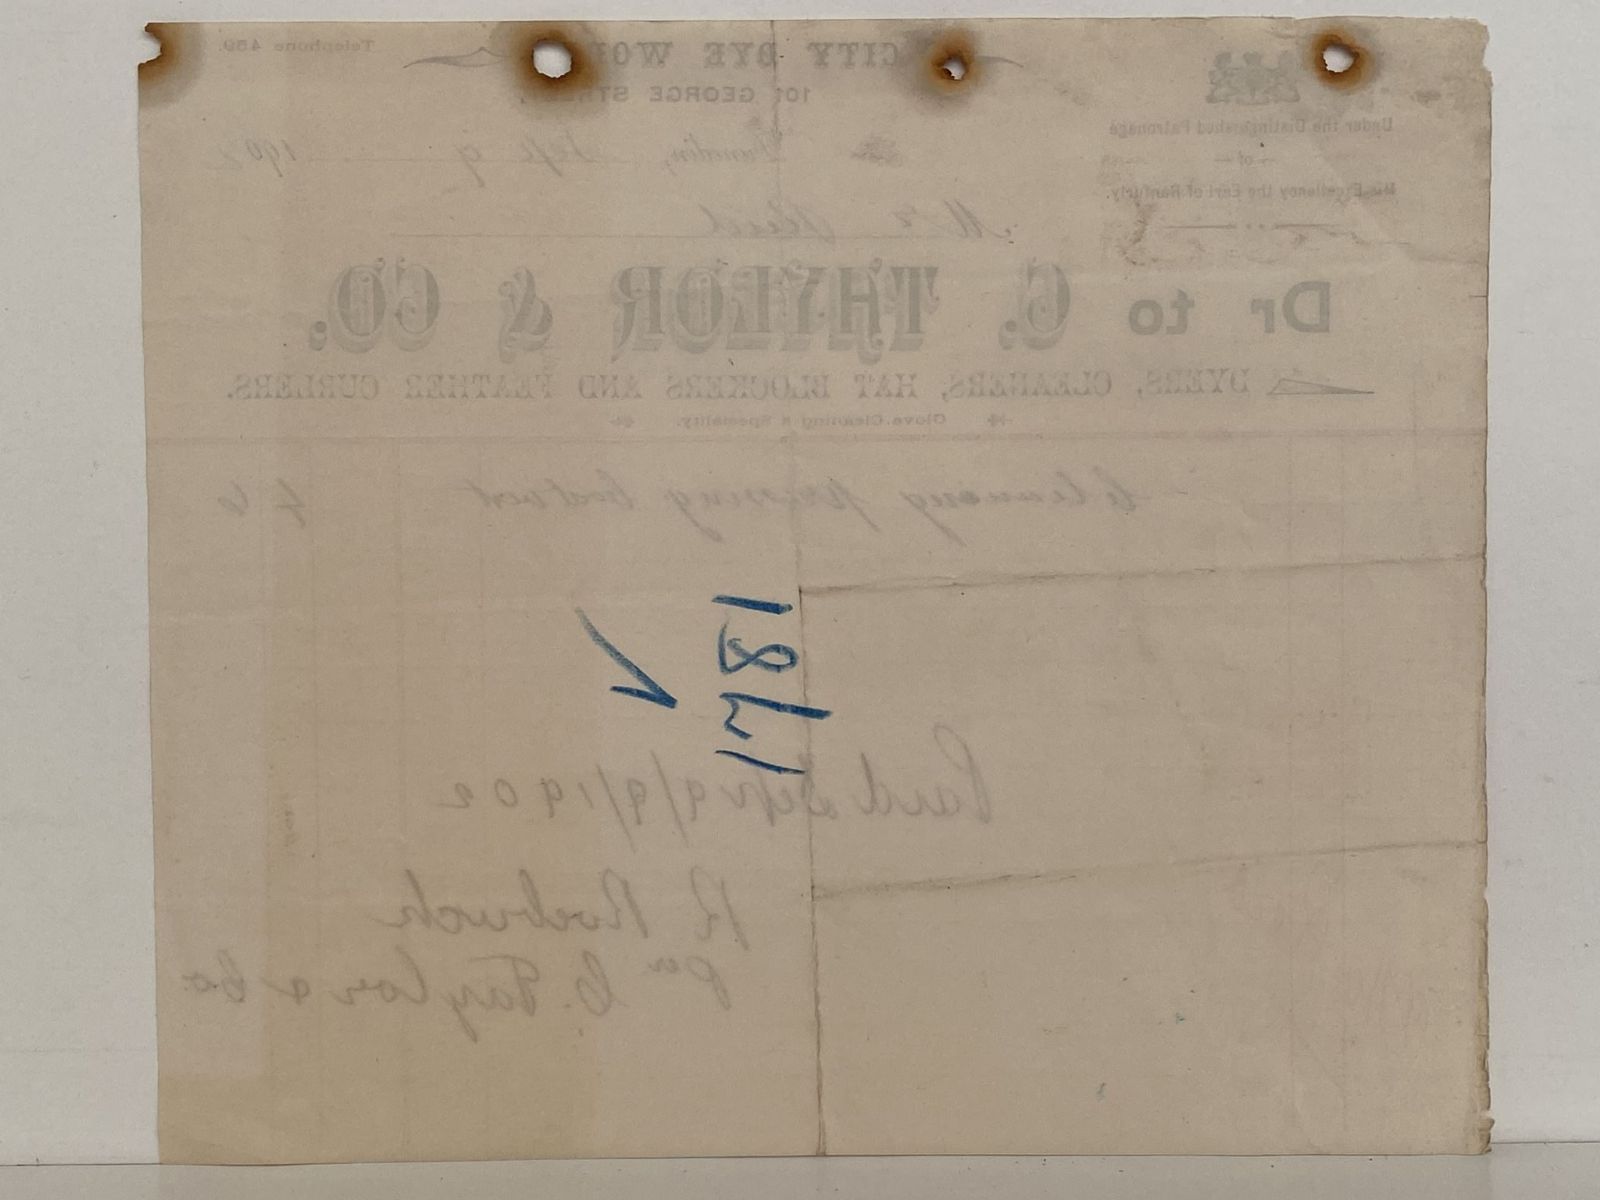 Telephone 459.
CITY DYE WOR
101 GEORGE STREET,
Under the Distinguished Patronage
of
His Excellency the Earl of Ranfurly.
Dunedin, Sep 9 1902
Mr
Dr to C. TAYLOR & CO.
DYERS, CLEANERS, HAT BLOCKERS AND FEATHER CURLERS.
Glove Cleaning a Speciality.
Cleaning pressing 4 6
Paid Sep 19/9/1902
R Roebuck
per C. Taylor & Co.